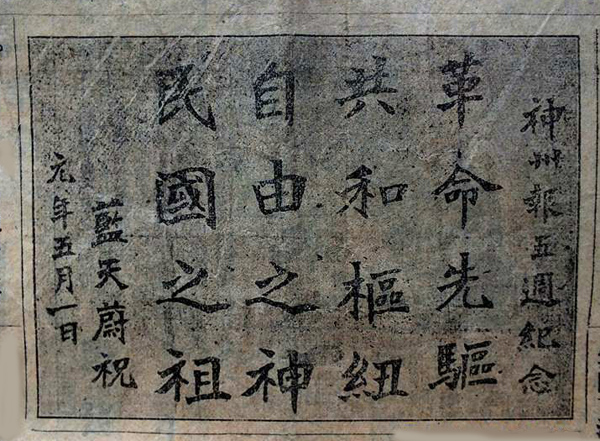 神州報五週紀念
革命先驅
共和樞紐
自由之神
民國之祖
藍天蔚祝
元年五月一日